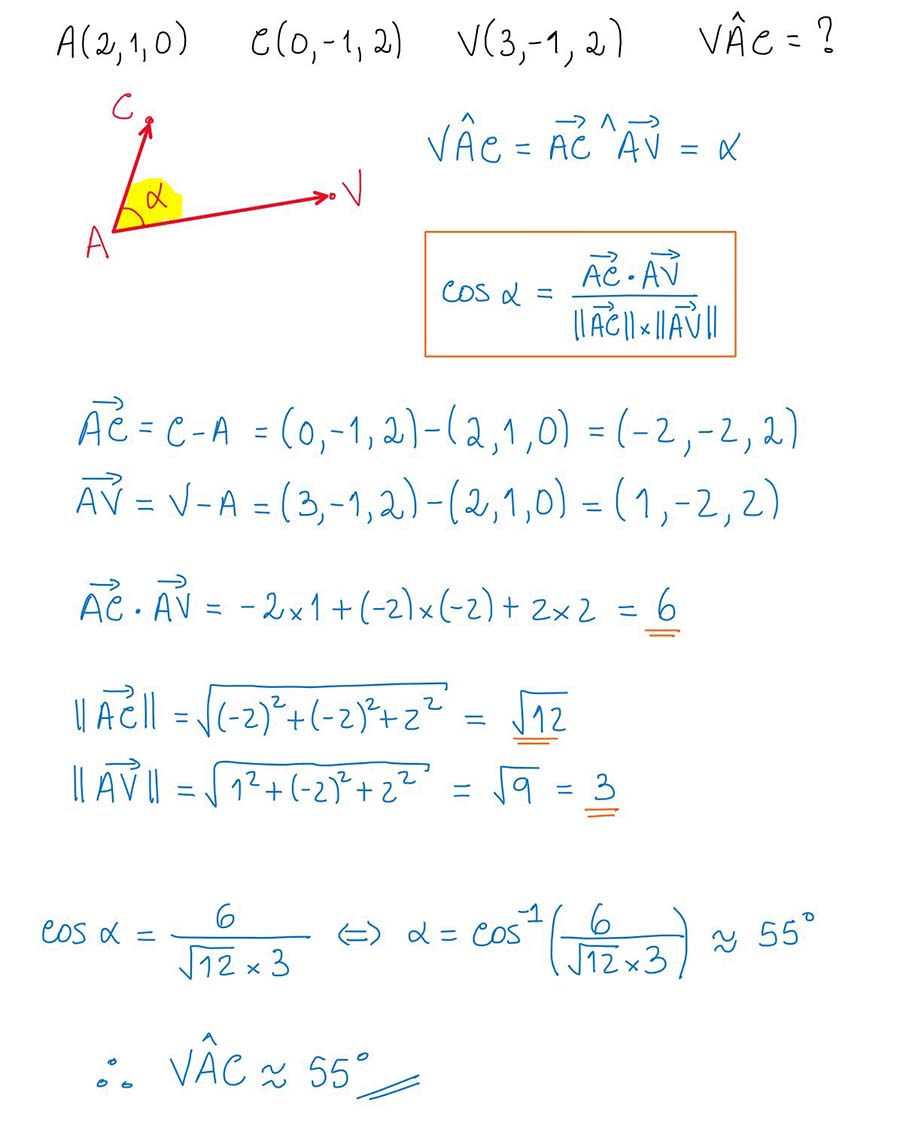 A(2,1,0) C(0,-1,2) V(3,-1,2) VÂC = ?
C
α
V
A
VÂC = AC⃗ ^ AV⃗ = α
cos α = (AC⃗ · AV⃗) / (||AC⃗|| × ||AV⃗||)
AC⃗ = C - A = (0,-1,2) - (2,1,0) = (-2,-2,2)
AV⃗ = V - A = (3,-1,2) - (2,1,0) = (1,-2,2)
AC⃗ · AV⃗ = -2×1 + (-2)×(-2) + 2×2 = 6
||AC⃗|| = √((-2)² + (-2)² + 2²) = √12
||AV⃗|| = √(1² + (-2)² + 2²) = √9 = 3
cos α = 6 / (√12 × 3) ⇔ α = cos⁻¹(6 / (√12 × 3)) ≈ 55°
∴ VÂC ≈ 55°